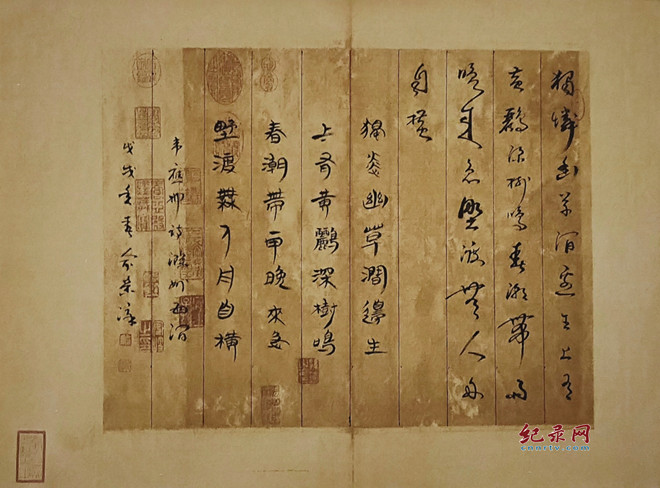 獨憐幽草澗邊生上有
黃鸝深樹鳴春潮帶雨
晚來急野渡無人舟
自橫
獨憐幽草澗邊生
上有黃鸝深樹鳴
春潮帶雨晚來急
野渡無人舟自橫
韋應物詩滁州西澗
戊戌
纪录网